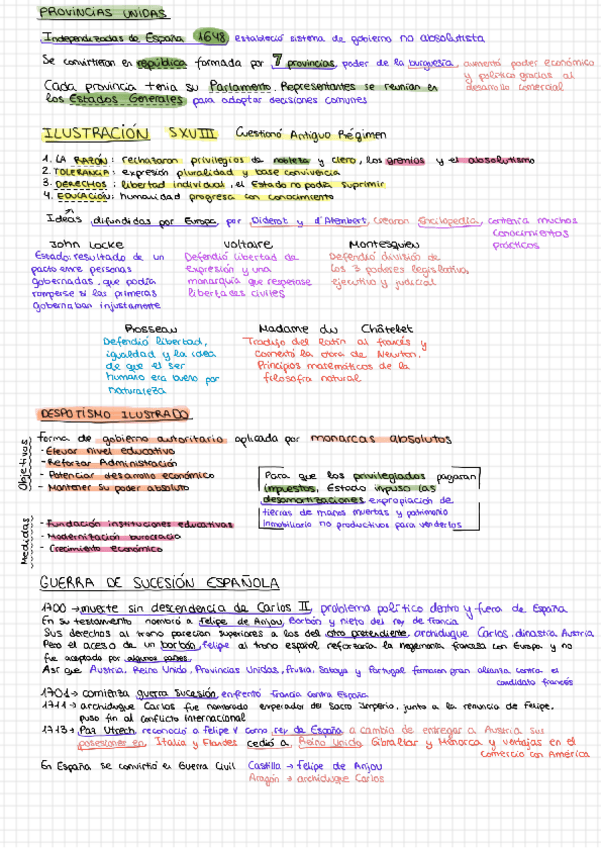 PROVINCIAS UNIDAS
Independizadas de España 1648 estableció sistema de gobierno no absolutista
Se convirtieron en república formada por 7 provincias, poder de la burguesía, aumentó poder económico
y político gracias al
desarrollo comercial
Cada provincia tenía su Parlamento. Representantes se reunían en
los Estados Generales para adoptar decisiones comunes
ILUSTRACIÓN SXVIII Cuestionó Antiguo Régimen
1. LA RAZÓN: rechazaron privilegios de nobleza y clero, los gremios y el absolutismo
2. TOLERANCIA: expresión pluralidad y base convivencia
3. DERECHOS: libertad individual, el Estado no podía suprimir
4. EDUCACIÓN: humanidad progresa con conocimiento
Ideas difundidas por Europa, por Diderot y d'Alembert, crearon Enciclopedia, contenía muchos
conocimientos
prácticos
John Locke
Estado: resultado de un
pacto entre personas
gobernadas, que podía
romperse si las primeras
gobernaban injustamente
Voltaire
Defendió libertad de
expresión y una
monarquía que respetase
libertades civiles
Montesquieu
Defendió división de
los 3 poderes legislativo,
ejecutivo y judicial
Rosseau
Defendió libertad,
igualdad y la idea
de que el ser
humano era bueno por
naturaleza
Madame du Châtelet
Tradujo del latín al francés y
comentó la obra de Newton.
Principios matemáticos de la
filosofía natural
DESPOTISMO ILUSTRADO
forma de gobierno autoritario aplicada por monarcas absolutos
Objetivos
- Elevar nivel educativo
- Reforzar Administración
- Potenciar desarrollo económico
- Mantener su poder absoluto
Para que los privilegiados pagaran
impuestos, Estado impuso las
desamortizaciones expropiación de
tierras de manos muertas y patrimonio
inmobiliario no productivos para venderlos
Medidas
- Fundación instituciones educativas
- Modernización burocracia
- Crecimiento económico
GUERRA DE SUCESIÓN ESPAÑOLA
1700 → muerte sin descendencia de Carlos II, problema político dentro y fuera de España
En su testamento nombró a Felipe de Anjou, Borbón y nieto del rey de Francia
Sus derechos al trono parecían superiores a los del otro pretendiente, archiduque Carlos, dinastía Austria
Pero el aceso de un borbón, Felipe al trono español reforzaría la hegemonía francesa con Europa y no
fue aceptado por algunos países.
Así que Austria, Reino Unido, Provincias Unidas, Prusia, Saboya y Portugal formaron gran alianza contra el
candidato francés
1701 → comienza guerra sucesión, enfrentó Francia contra España
1711 → archiduque Carlos fue nombrado emperador del Sacro Imperio, junto a la renuncia de Felipe,
puso fin al conflicto internacional
1713 → Paz Utrech, reconoció a Felipe V como rey de España a cambio de entregar a Austria sus
posesiones en Italia y Flandes cedió a Reino Unido Gibraltar y Menorca y ventajas en el
comercio con América
En España se convirtió en Guerra Civil Castilla → Felipe de Anjou
Aragón → archiduque Carlos